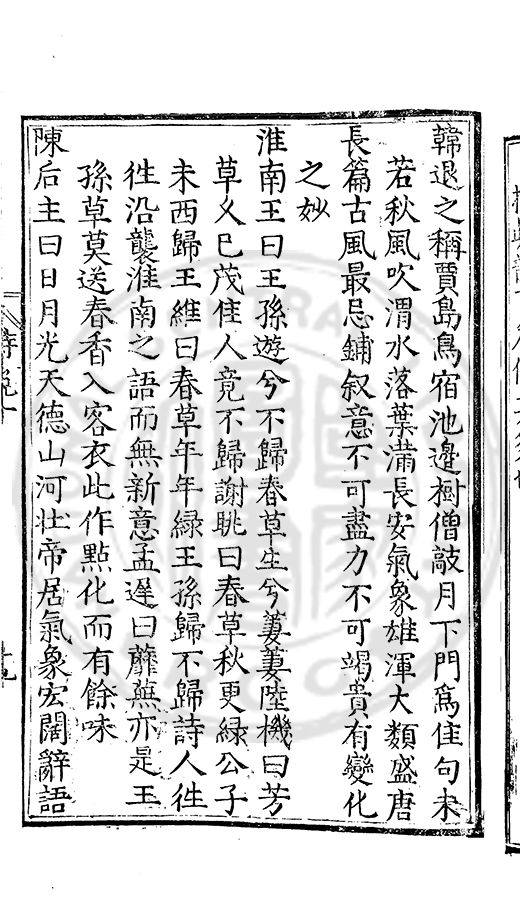 韓退之稱賈島鳥宿池邊樹僧敲月下門爲佳句未
若秋風吹渭水落葉滿長安氣象雄渾大類盛唐
長篇古風最忌鋪叙意不可盡力不可竭貴有變化
之妙
淮南王曰王孫遊兮不歸春草生兮萋萋陸機曰芳
草乂巳茂佳人竟不歸謝眺曰春草秋更綠公子
未西歸王維曰春草年年緑王孫歸不歸詩人徃
徃沿襲淮南之語而無新意孟遲曰蘼蕪亦是王
孫草莫送春香入客衣此作點化而有餘味
陳后主曰日月光天德山河壯帝居氣象宏闊辭語